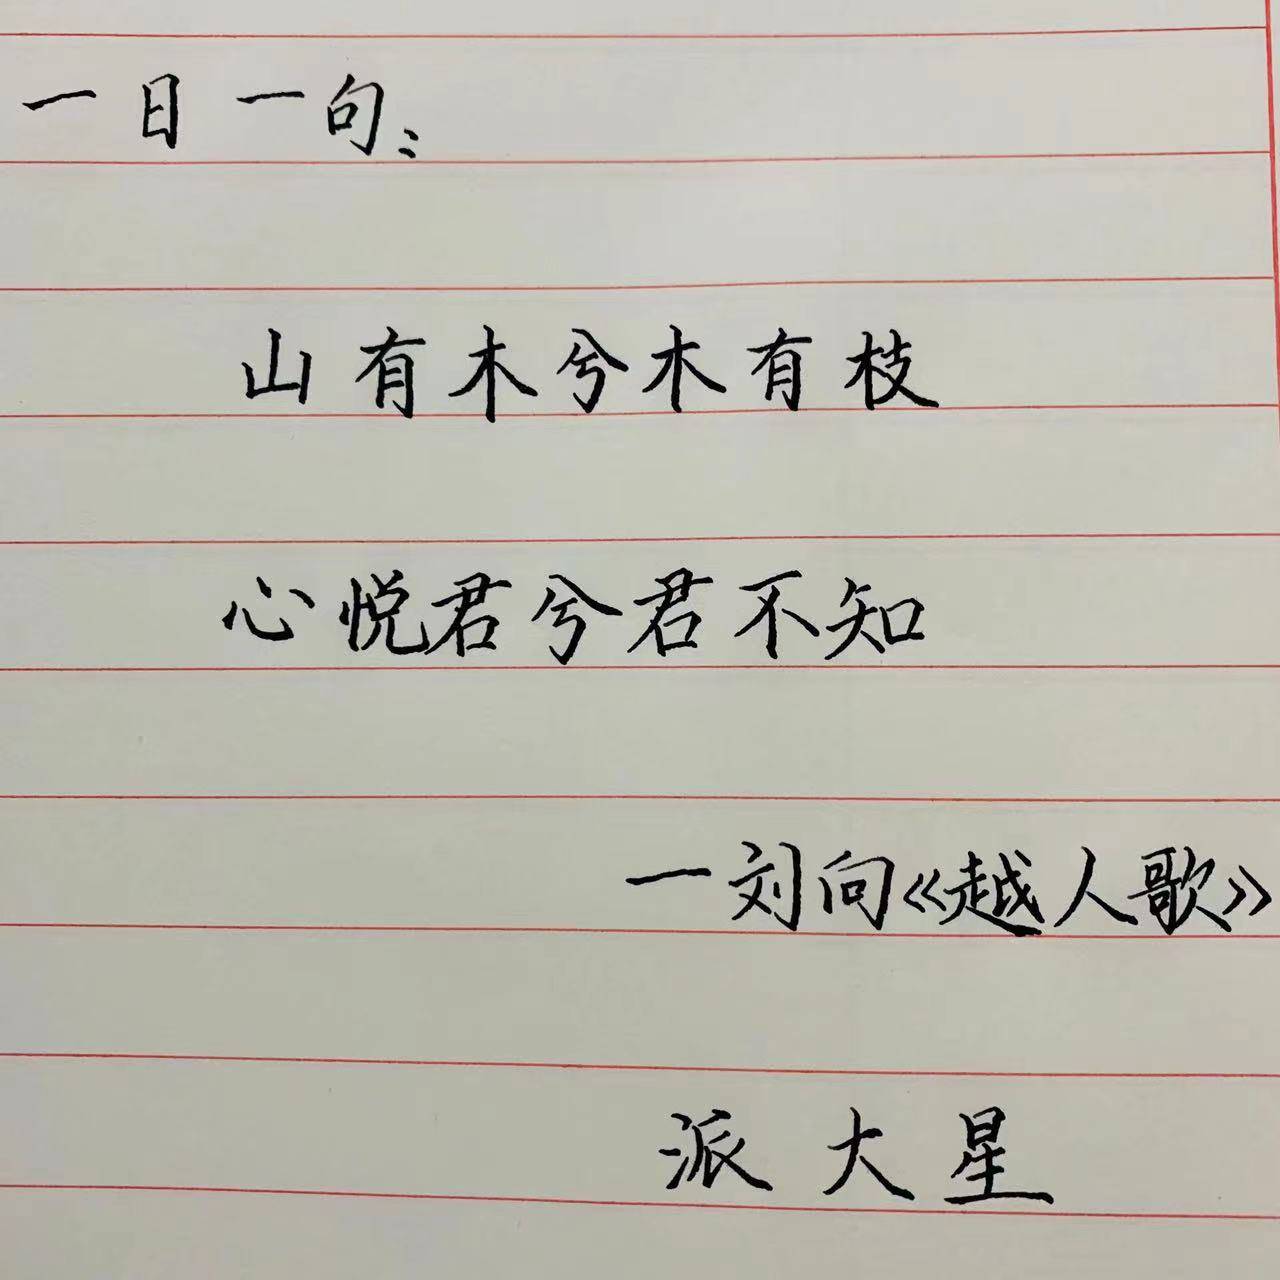 一日一句：
山有木兮木有枝
心悦君兮君不知
一刘向《越人歌》
派大星